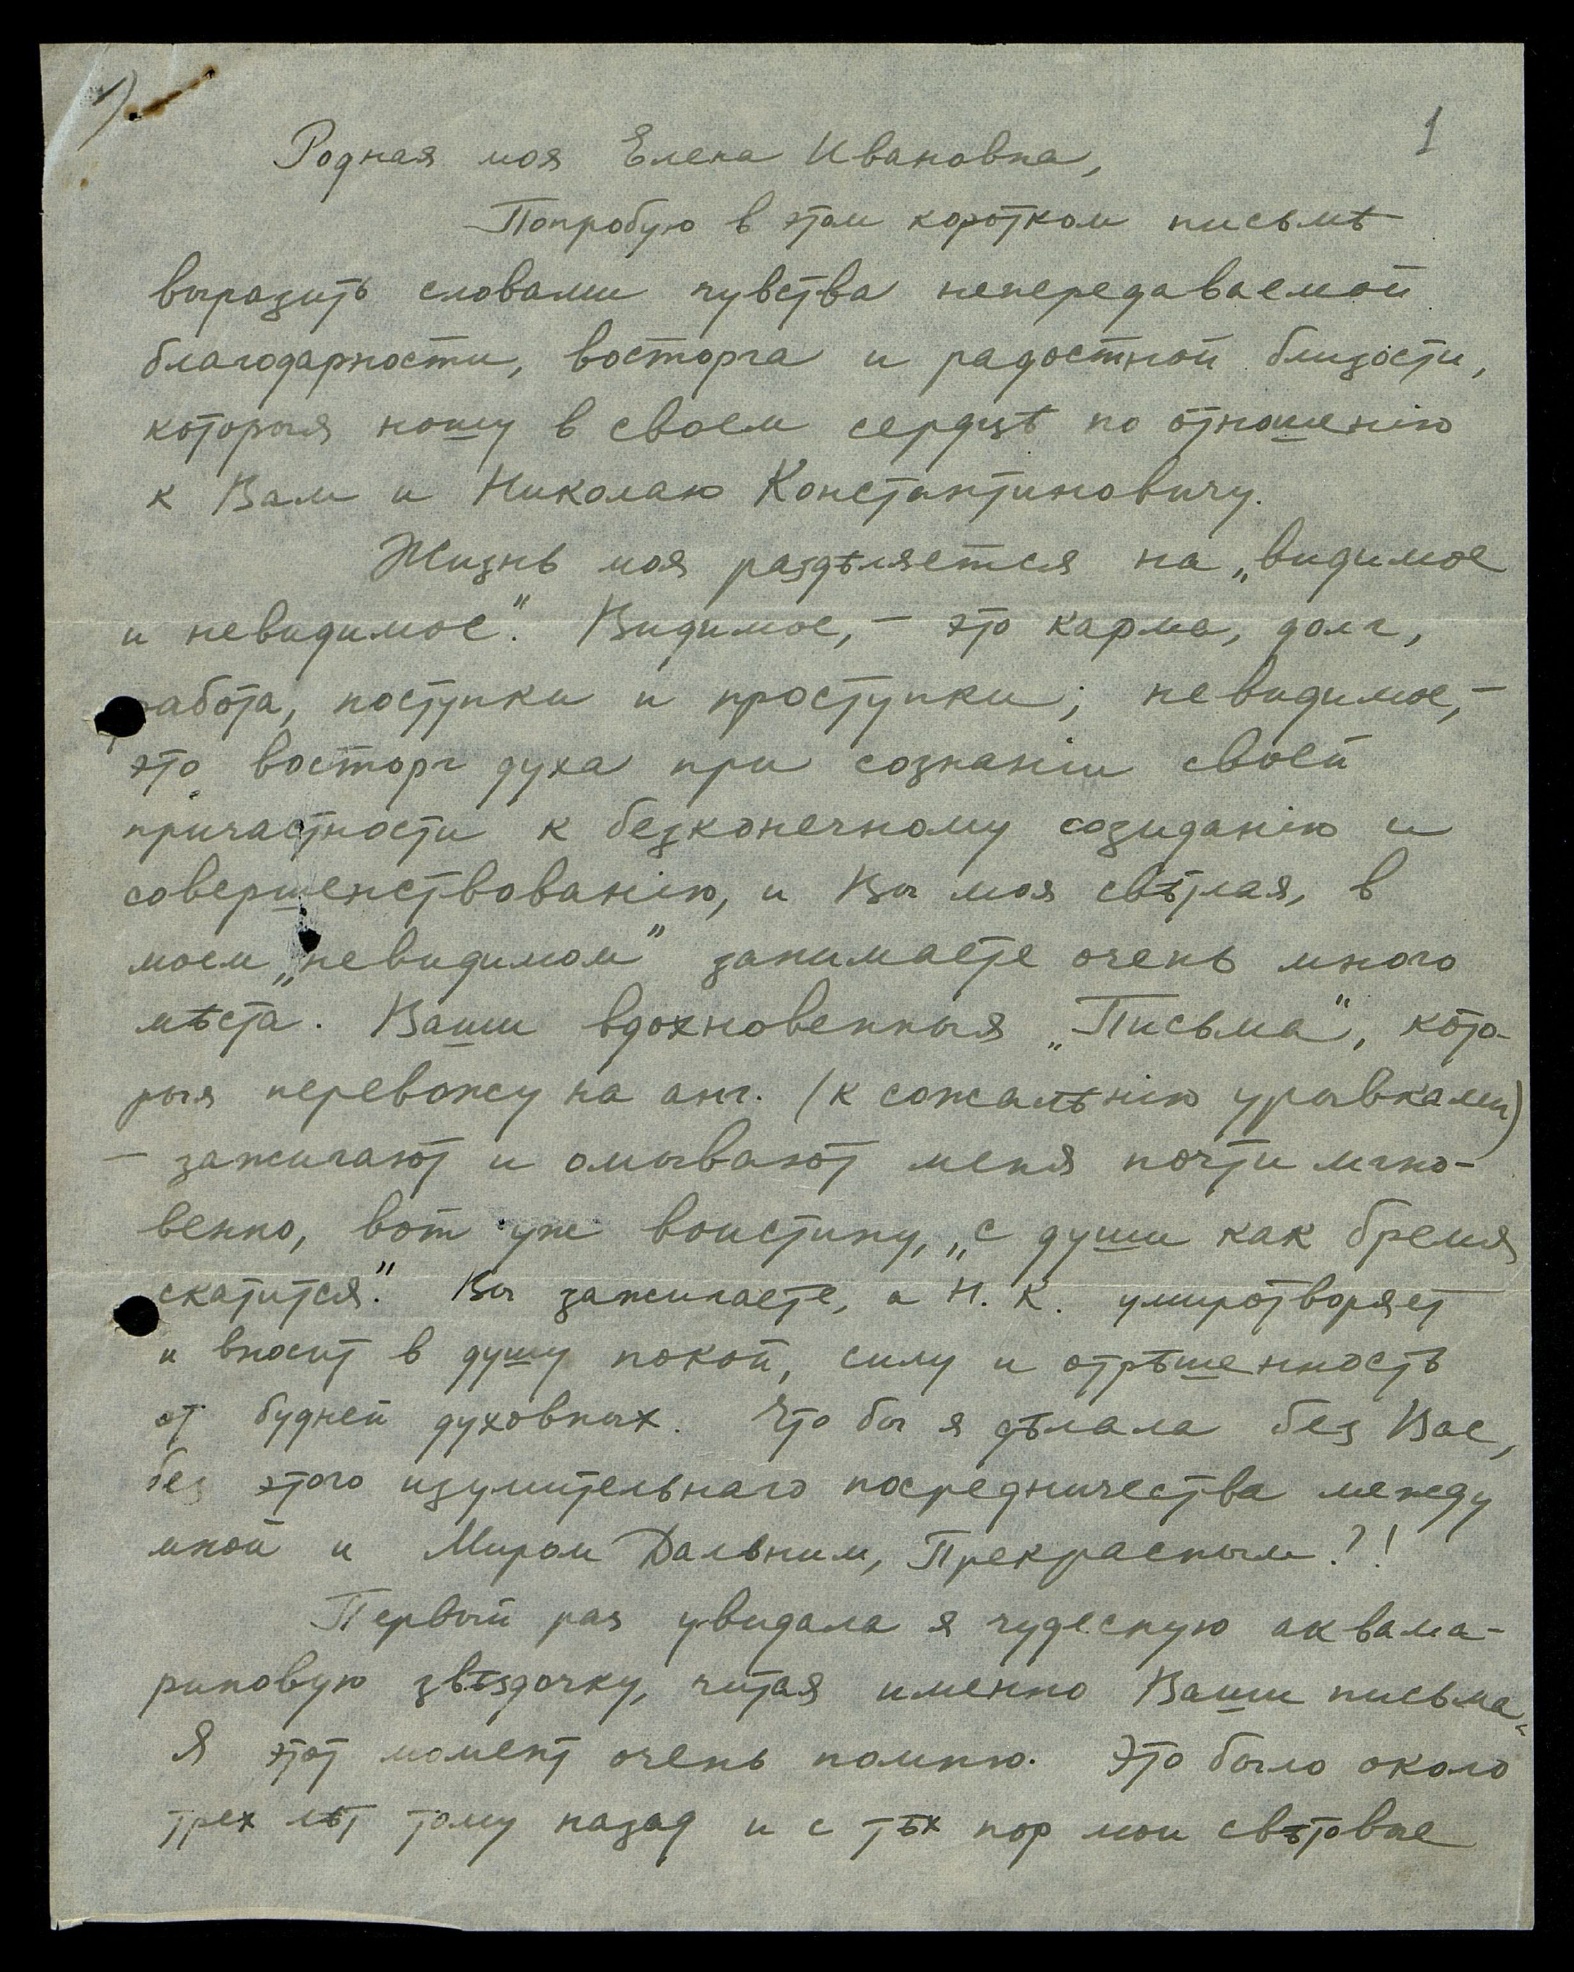 1)
1
Родная моя Елена Ивановна,
Попробую в этом коротком письмѣ
выразить словами чувства непередаваемой
благодарности, восторга и радостной близости,
которыя ношу в своем сердцѣ по отношенію
к Вам и Николаю Константиновичу.
Жизнь моя раздѣляется на „видимое
и невидимое". Видимое, – это карма, долг,
работа, поступки и проступки; невидимое, –
это восторг духа при сознаніи своей
причастности к безконечному созиданію и
совершенствованію, и Вы моя свѣтлая, в
моем „невидимом" занимаете очень много
мѣста. Ваши вдохновенныя „Письма", кото-
рыя перевожу на анг. (к сожалѣнію урывками)
– зажигают и омывают меня почти мгно-
венно, вот уж воистину, „с души как бремя
скатится". Вы зажигаете, а Н. К. умиротворяет
и вносит в душу покой, силу и отрѣшенность
от будней духовных. Что бы я дѣлала без Вас,
без этого изумительнаго посредничества между
мной и Миром Дальним, Прекрасным?!
Первый раз увидала я чудесную аквама-
риновую звѣздочку, читая именно Ваши письма.
Я этот момент очень помню. Это было около
трех лѣт тому назад и с тѣх пор мои свѣтовые